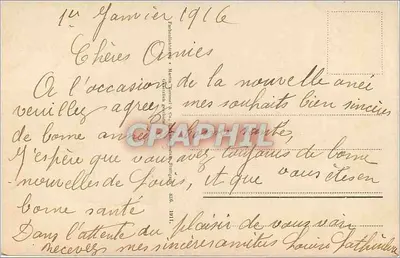 1er Janvier 1916
Chères Amies
A l'occasion de la nouvelle aneé
veuillez agreer mes souhaits bien sincères
de bonne anneé santé,
J'espère que vous avez toujours de bone
nouvelles de Louis, et que vous êtes en
bone santé
Dans l'attente du plaisir de vous voir
recevez mes sincères amitiés Louise
CPAPHIL